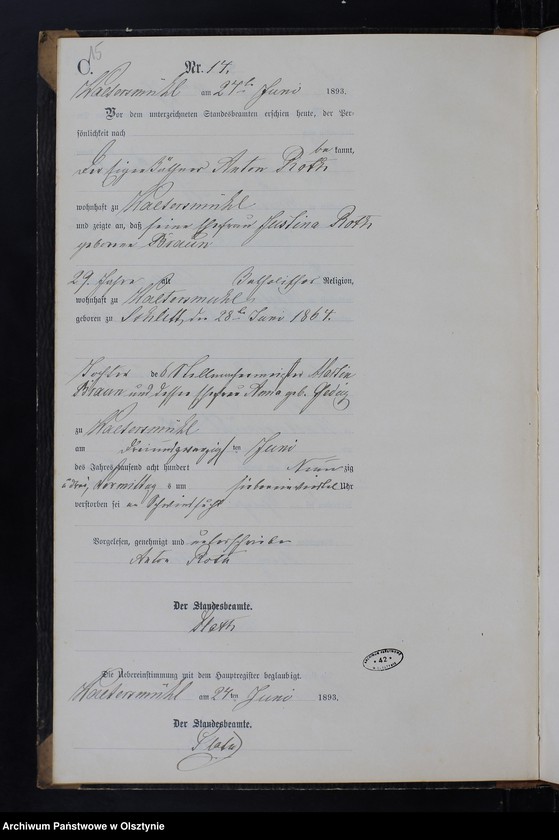 15
C.
Nr. 14.
Waltersmühl am 24ten Juni 1893.
Vor dem unterzeichneten Standesbeamten erschien heute, der Per-
sönlichkeit nach
bekannt,
der Eigenkäthner Anton Roth
wohnhaft zu Waltersmühl
und zeigte an, daß seine Ehefrau Justina Roth
geborene Braun
29 Jahre alt, katholischer Religion,
wohnhaft zu Waltersmühl
geboren zu Schlitt, den 28ten Juni 1864.
Tochter des Stellmachermeister Martin
Braun und dessen Ehefrau Anna geb.
zu Waltersmühl
am dreiundzwanzigsten Juni
des Jahres tausend acht hundert Neunzig
u drei, Vormittag s um sieben Uhr
verstorben sei an Schwindsucht
Vorgelesen, genehmigt und unterschrieben
Anton Roth
Der Standesbeamte.
Die Uebereinstimmung mit dem Hauptregister beglaubigt.
Waltersmühl am 24ten Juni 1893.
Der Standesbeamte.
* 42 *
Archiwum Państwowe w Olsztynie